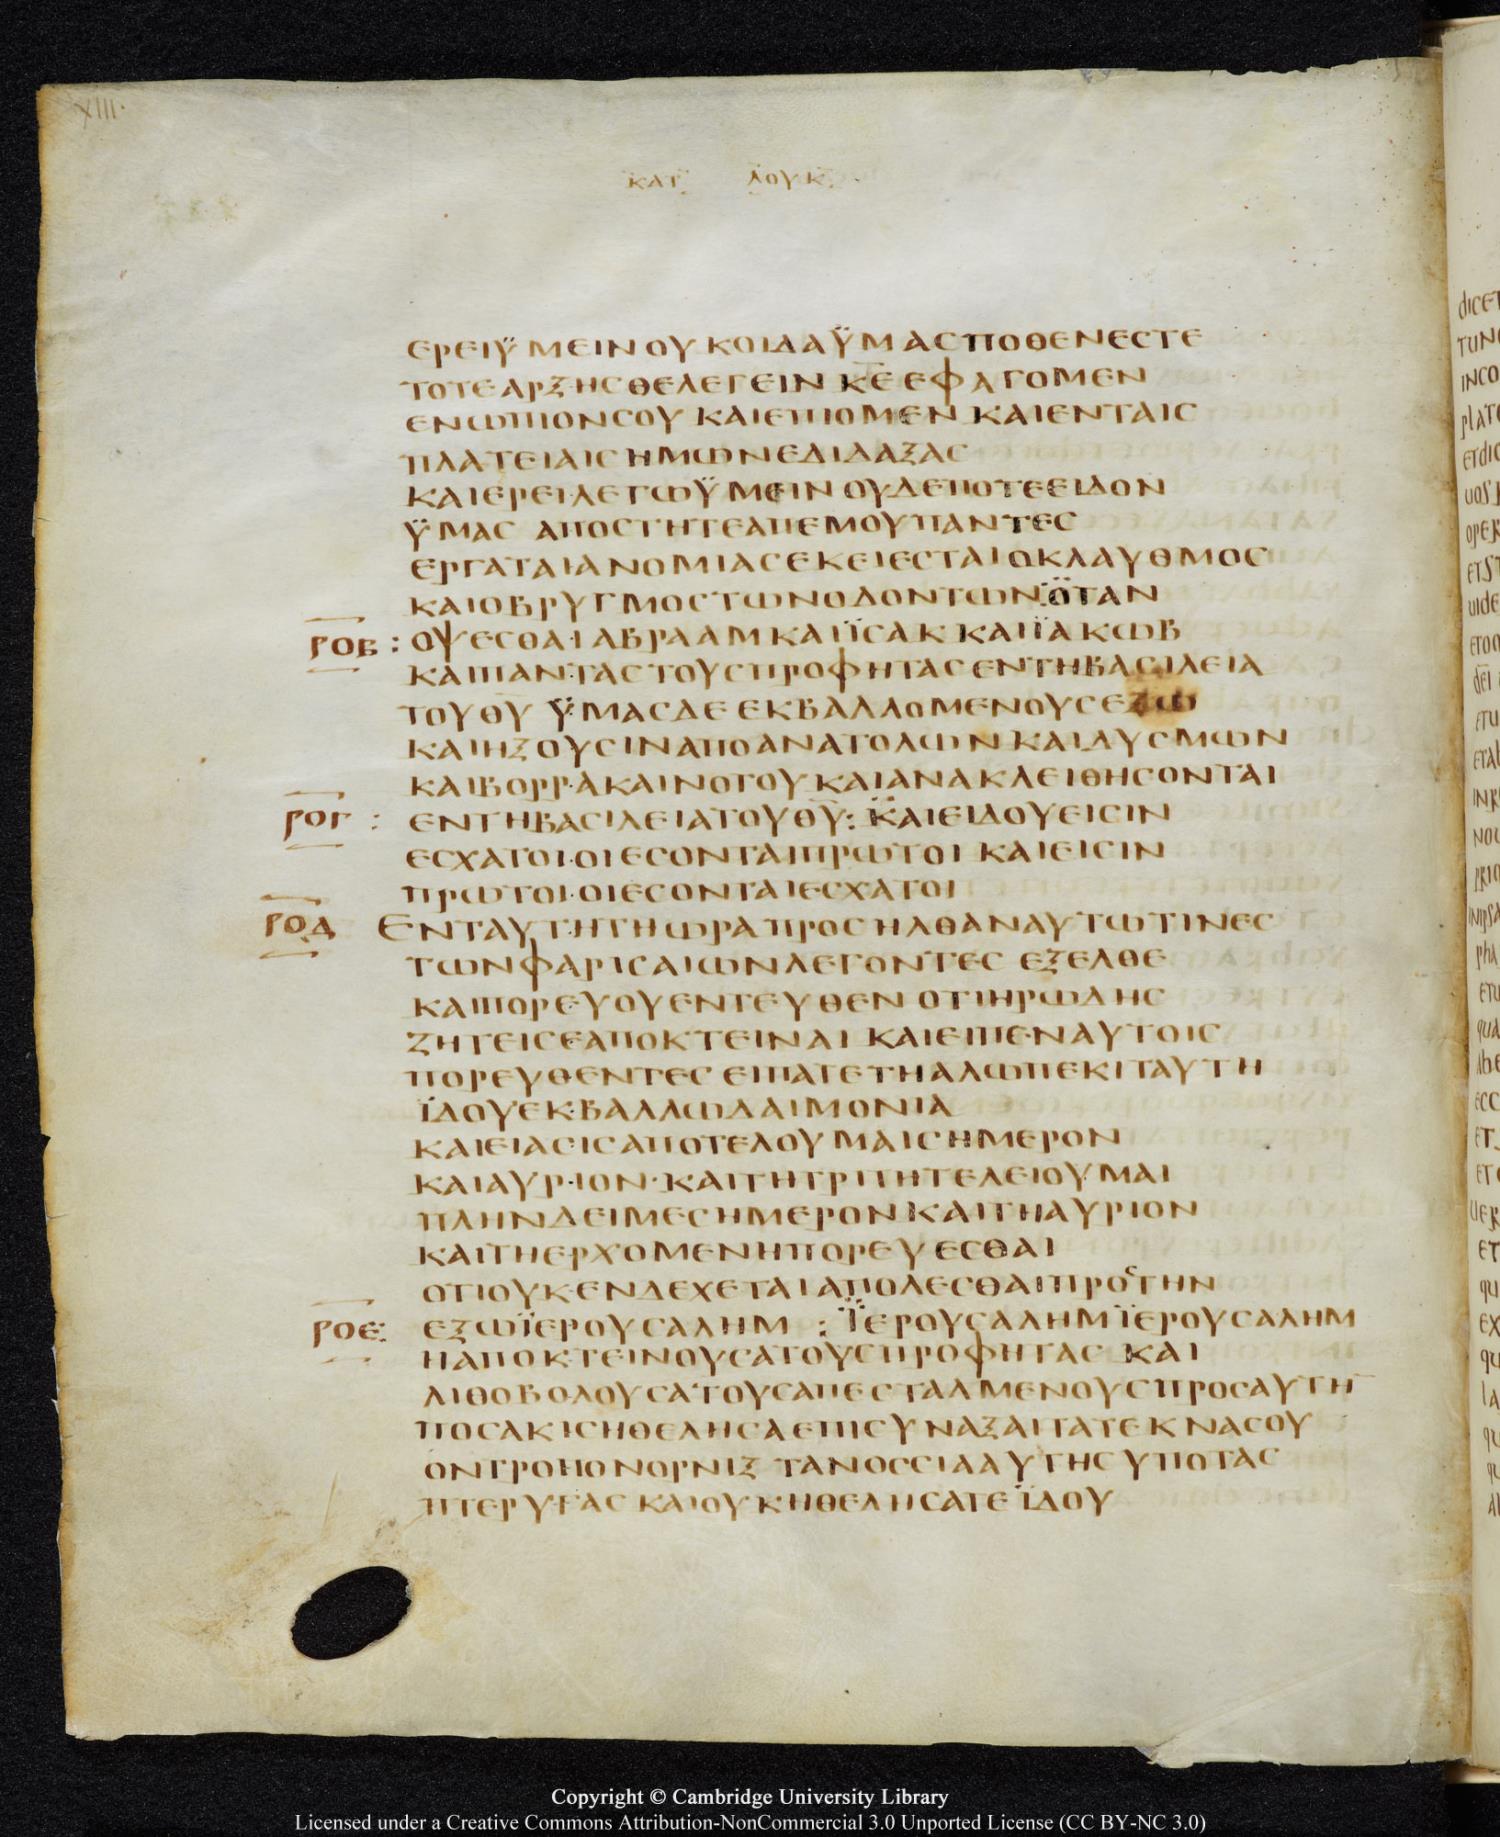 XIII·
ΚΑΤ ΛΟΥΚ
ΕΡΕΙΫΜΕΙΝΟΥΚΟΙΔΑΫΜΑΣΠΟΘΕΝΕΣΤΕ
ΤΟΤΕΑΡΞΗΣΘΕΛΕΓΕΙΝ ΚΕ ΕΦΑΓΟΜΕΝ
ΕΝΩΠΙΟΝΣΟΥ ΚΑΙΕΠΙΟΜΕΝ ΚΑΙΕΝΤΑΙΣ
ΠΛΑΤΕΙΑΙΣΗΜΩΝΕΔΙΔΑΞΑΣ
ΚΑΙΕΡΕΙ·ΛΕΓΩΫΜΕΙΝ ΟΥΔΕΠΟΤΕΕΙΔΟΝ
ΫΜΑΣ ΑΠΟΣΤΗΤΕΑΠΕΜΟΥΠΑΝΤΕΣ
ΕΡΓΑΤΑΙΑΝΟΜΙΑΣΕΚΕΙΕΣΤΑΙΟΚΛΑΥΘΜΟΣ
ΚΑΙΟΒΡΥΓΜΟΣΤΩΝΟΔΟΝΤΩΝ:ΟΤΑΝ
ΡΟΒ : ΟΨΕΣΘΑΙΑΒΡΑΑΜΚΑΙΪΣΑΚ ΚΑΙΪΑΚΩΒ
ΚΑΙΠΑΝΤΑΣΤΟΥΣΠΡΟΦΗΤΑΣΕΝΤΗΒΑΣΙΛΕΙΑ
ΤΟΥΘΥ ΫΜΑΣΔΕ ΕΚΒΑΛΛΟΜΕΝΟΥΣΕΞΩ
ΚΑΙΗΞΟΥΣΙΝΑΠΟΑΝΑΤΟΛΩΝΚΑΙΔΥΣΜΩΝ
ΚΑΙΒΟΡΡΑΚΑΙΝΟΤΟΥΚΑΙΑΝΑΚΛΕΙΘΗΣΟΝΤΑΙ
ΡΟΓ : ΕΝΤΗΒΑΣΙΛΕΙΑΤΟΥΘΥ: ΚΑΙΕΙΔΟΥΕΙΣΙΝ
ΕΣΧΑΤΟΙ·ΟΙΕΣΟΝΤΑΙΠΡΩΤΟΙ ΚΑΙΕΙΣΙΝ
ΠΡΩΤΟΙ·ΟΙΕΣΟΝΤΑΙΕΣΧΑΤΟΙ
ΡΟΔ ΕΝΤΑΥΤΗΤΗΩΡΑΠΡΟΣΗΛΘΑΝΑΥΤΩΤΙΝΕΣ
ΤΩΝΦΑΡΙΣΑΙΩΝΛΕΓΟΝΤΕΣ ΕΞΕΛΘΕ
ΚΑΙΠΟΡΕΥΟΥΕΝΤΕΥΘΕΝ ΟΤΙΗΡΩΔΗΣ
ΖΗΤΕΙΣΕΑΠΟΚΤΕΙΝΑΙ ΚΑΙΕΙΠΕΝΑΥΤΟΙΣ
ΠΟΡΕΥΘΕΝΤΕΣ ΕΙΠΑΤΕΤΗΑΛΩΠΕΚΙΤΑΥΤΗ
ΪΔΟΥΕΚΒΑΛΛΩΔΑΙΜΟΝΙΑ
ΚΑΙΕΙΑΣΙΣΑΠΟΤΕΛΟΥΜΑΙΣΗΜΕΡΟΝ
ΚΑΙΑΥΡΙΟΝ·ΚΑΙΤΗΤΡΙΤΗΤΕΛΕΙΟΥΜΑΙ
ΠΛΗΝΔΕΙΜΕΣΗΜΕΡΟΝΚΑΙΤΗΑΥΡΙΟΝ
ΚΑΙΤΗΕΡΧΟΜΕΝΗΠΟΡΕΥΕΣΘΑΙ
ΟΤΙΟΥΚΕΝΔΕΧΕΤΑΙΑΠΟΛΕΣΘΑΙΠΡΟΣΤΗΝ
ΡΟΕ: ΕΞΩΪΕΡΟΥΣΑΛΗΜ : ΪΕΡΟΥΣΑΛΗΜΪΕΡΟΥΣΑΛΗΜ
ΗΑΠΟΚΤΕΙΝΟΥΣΑΤΟΥΣΠΡΟΦΗΤΑΣ ΚΑΙ
ΛΙΘΟΒΟΛΟΥΣΑΤΟΥΣΑΠΕΣΤΑΛΜΕΝΟΥΣΠΡΟΣΑΥΤΗ̅
ΠΟΣΑΚΙΣΗΘΕΛΗΣΑΕΠΙΣΥΝΑΞΑΙΤΑΤΕΚΝΑΣΟΥ
ΟΝΤΡΟΠΟΝΟΡΝΙΞ ΤΑΝΟΣΣΙΑΑΥΤΗΣΥΠΟΤΑΣ
ΠΤΕΡΥΓΑΣ ΚΑΙΟΥΚΗΘΕΛΗΣΑΤΕΪΔΟΥ
Copyright © Cambridge University Library
Licensed under a Creative Commons Attribution-NonCommercial 3.0 Unported License (CC BY-NC 3.0)